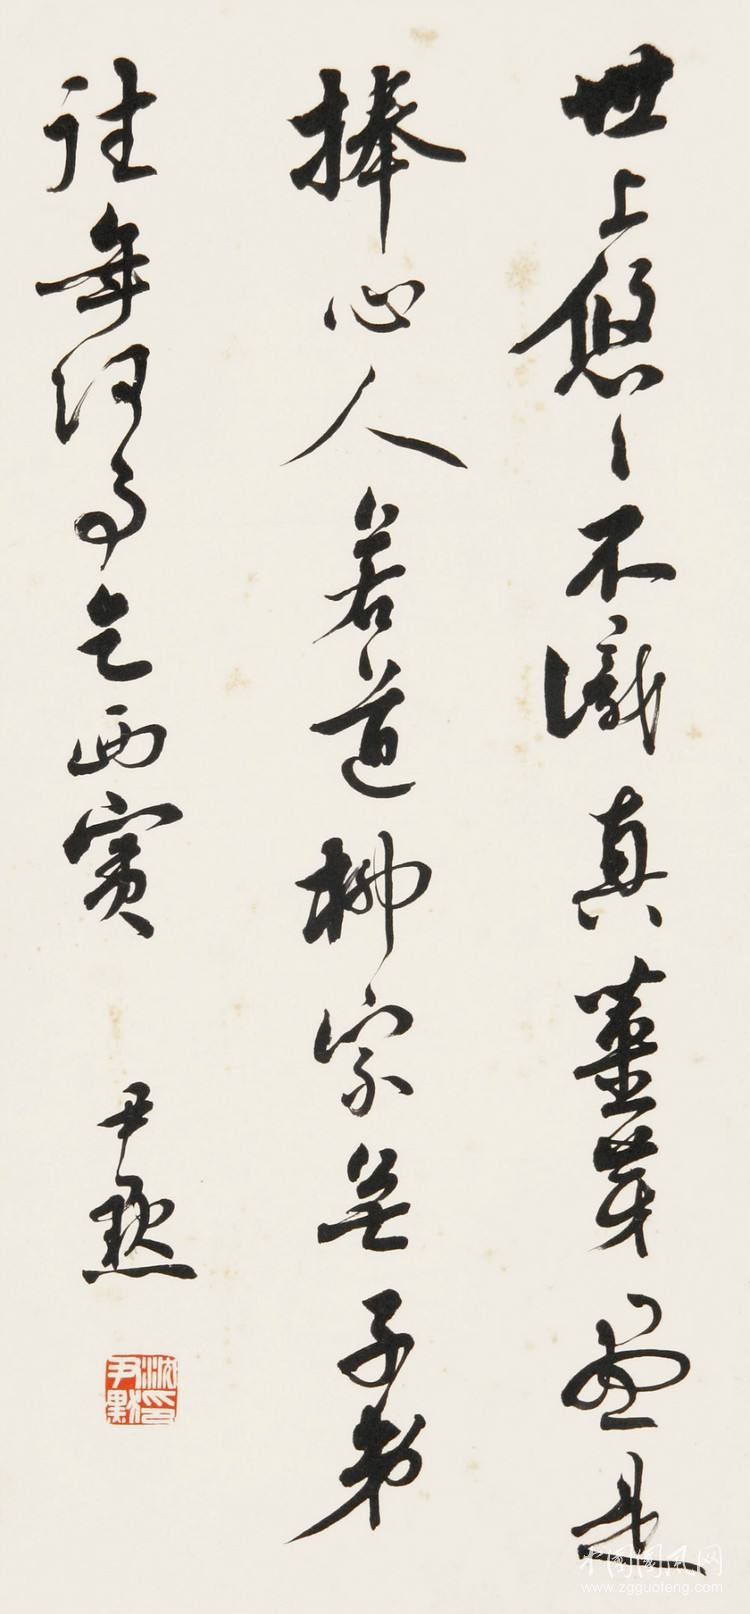 世上悠〻不識真薑芽盡是
捧心人若道柳家無子弟
往年何事乞西賓
尹默
沈印尹默
中国国风网
www.zgguofeng.com